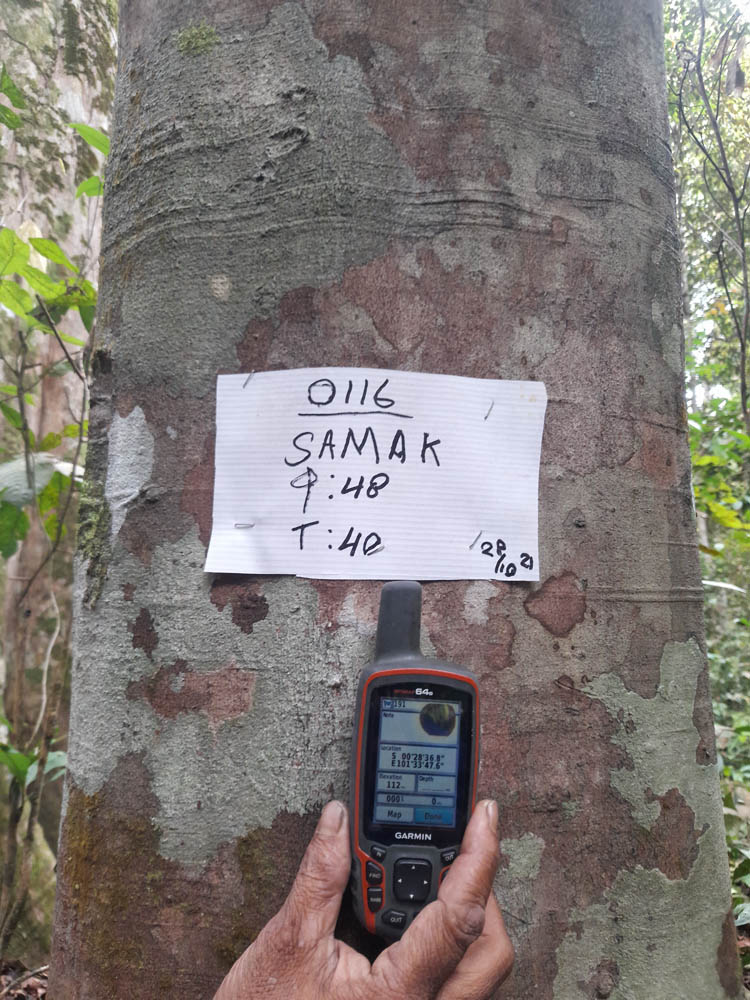 0116
SAMAK
φ:48
T:40
28/10 21
64s
191
Note
Location
S 00°28'36.8"
E101°33'47.6"
Elevation
Depth
112
Map
Done
GARMIN
IN
FIND
QUIT